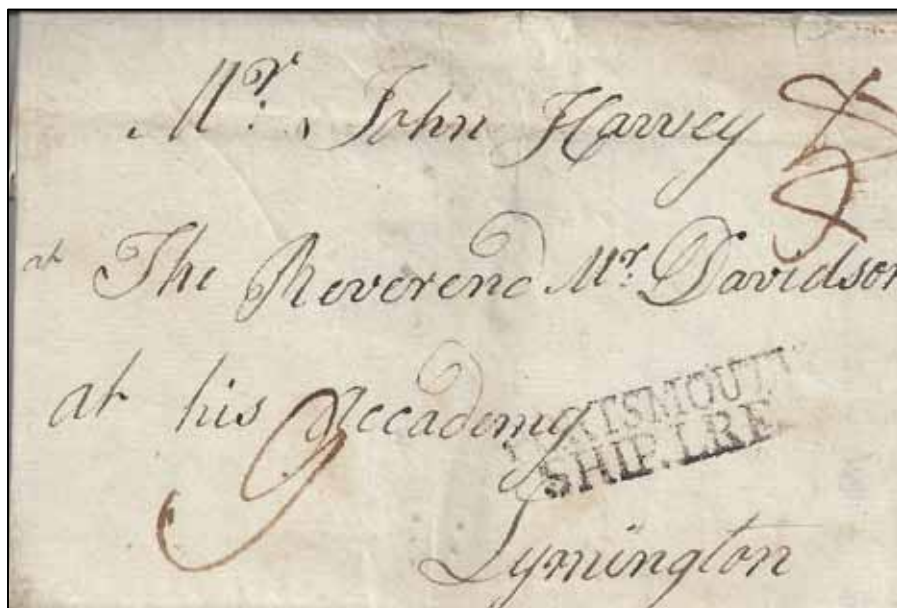 Mr. John Harvey
at The Reverend Mr. Davidson
at his Accademy
9
PORTSMOUTH
SHIP.LRE
Lymington